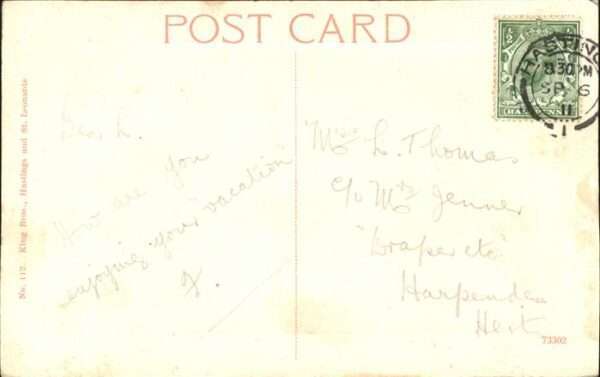 POST CARD
HASTINGS
8.30 PM
SP 6
11
1
HALFPENNY
No. 112. King Bros., Hastings and St. Leonards
Dear L.
How are you
enjoying your "vacation"
L. Thomas
c/o Mrs Jenner
"Draper etc"
Harpenden
Herts
73302